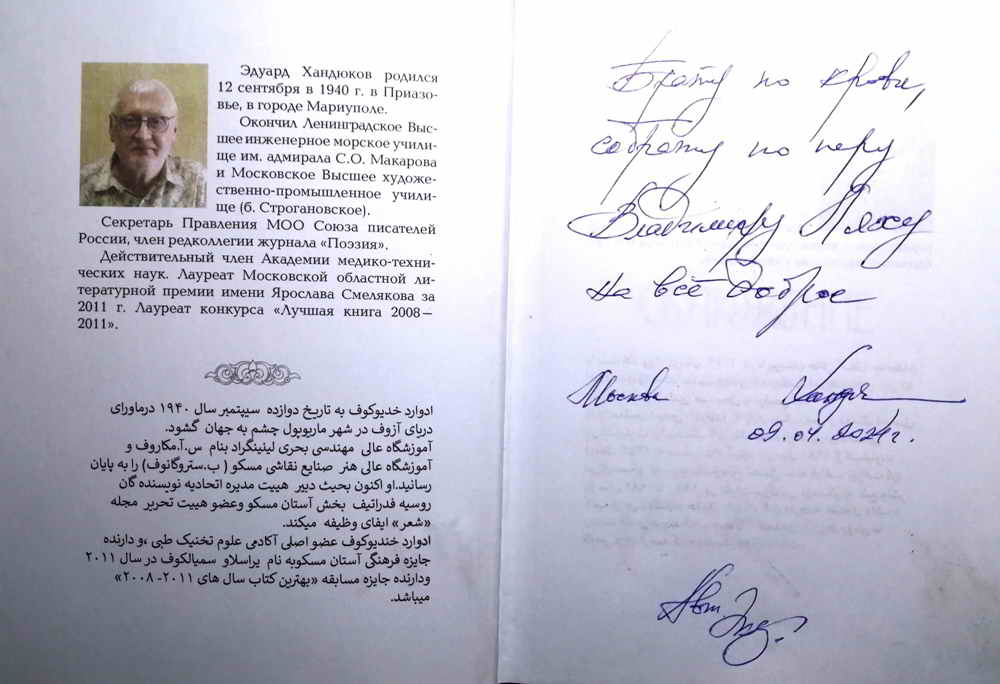 Эдуард Хандюков родился
12 сентября в 1940 г. в Приазо-
вье, в городе Мариуполе.
Окончил Ленинградское Выс-
шее инженерное морское учили-
ще им. адмирала С.О. Макарова
и Московское Высшее художе-
ственно-промышленное учили-
ще (б. Строгановское).
Секретарь Правления МОО Союза писателей
России, член редколлегии журнала «Поэзия».
Действительный член Академии медико-техни-
ческих наук. Лауреат Московской областной ли-
тературной премии имени Ярослава Смелякова за
2011 г. Лауреат конкурса «Лучшая книга 2008–
2011».
ادوارد خدیوکوف به تاریخ دوازده سیپتمبر سال ۱۹۴۰ درماورای
دریای آزوف در شهر ماریوپول چشم به جهان گشود.
آموزشگاه عالی مهندسی بحری لیننگراد بنام س.آ.مکاروف و
آموزشگاه عالی هنر صنایع نقاشی مسکو ( ب.ستروگانوف) را به پایان
رسانید.او اکنون بحیث دبیر هییت مدیره اتحادیه نویسنده گان
روسیه فدراتیف بخش آستان مسکو وعضو هییت تحریر مجله
«شعر» ایفای وظیفه میکند.
ادوارد خندیوکوف عضو اصلی آکادمی علوم تخنیک طبی ،و دارنده
جایزه فرهنگی آستان مسکوبه نام یراسلاو سمیالکوف در سال ۲۰۱۱
ودارنده جایزه مسابقه «بهترین کتاب سال های ۲۰۱۱- ۲۰۰۸»
میباشد.
Брату по крови,
собрату по перу
Владимиру Пляху
На всё доброе
Москва
09.04.2024г.